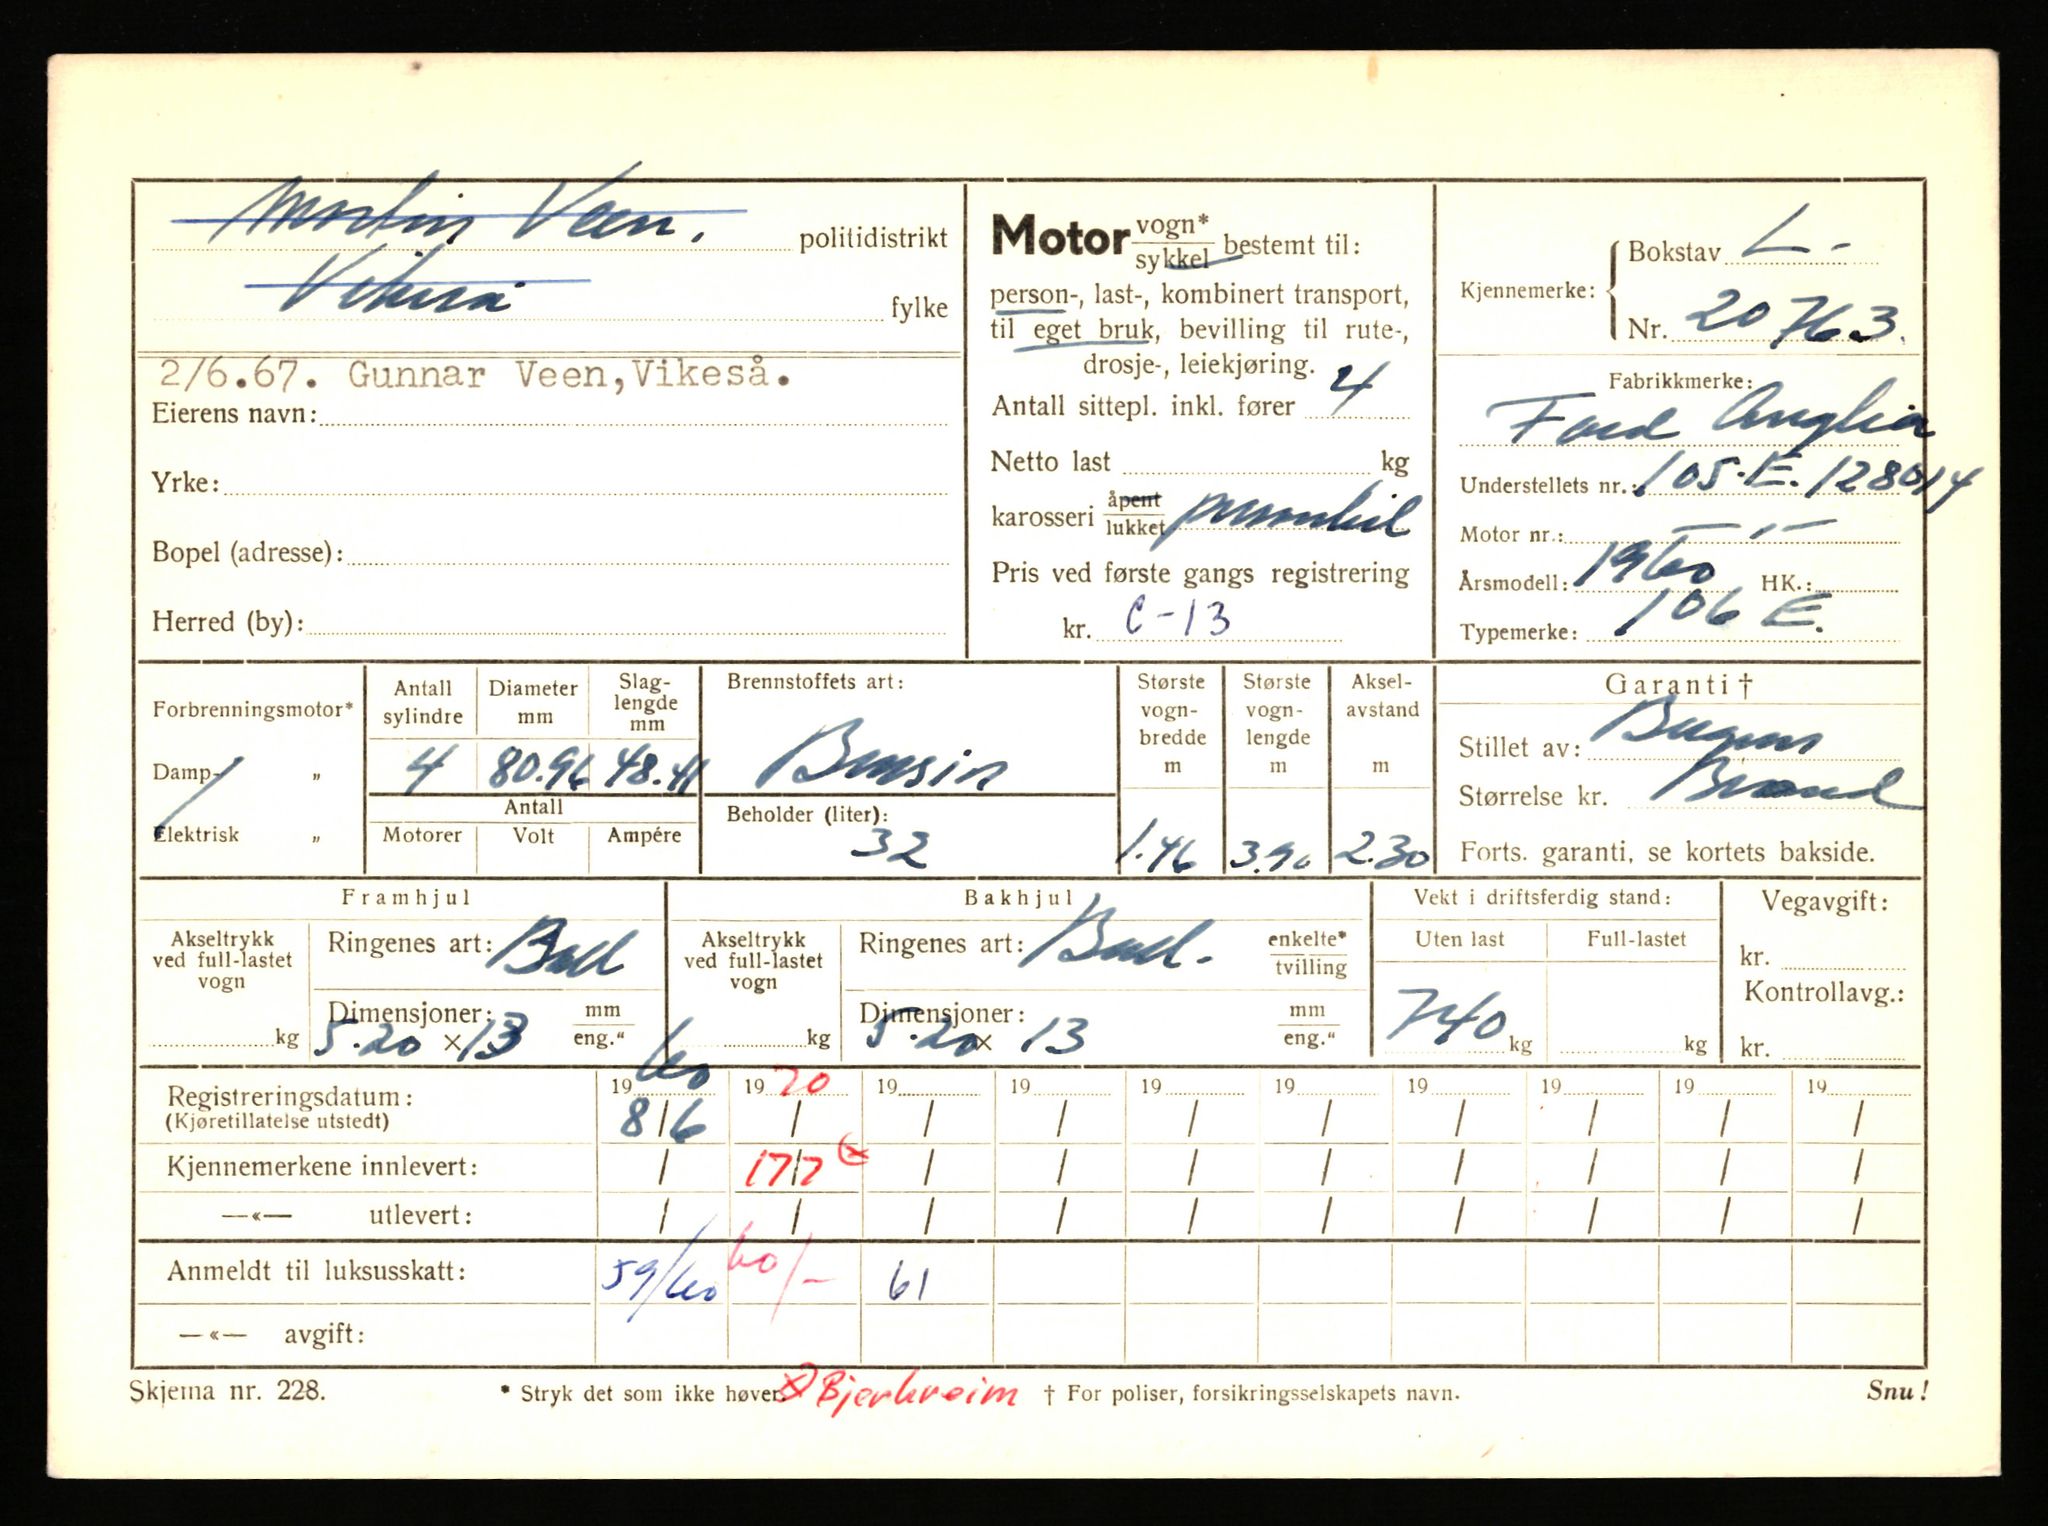 Martin Veen. politidistrikt
Vikeså fylke
2/6.67. Gunnar Veen, Vikeså.
Eierens navn:
Yrke:
Bopel (adresse):
Herred (by):
Motor vogn* / sykkel bestemt til:
person-, last-, kombinert transport,
til eget bruk, bevilling til rute-,
drosje-, leiekjøring.
Antall sittepl. inkl. fører 4
Netto last kg
karosseri åpent / lukket personbil
Pris ved første gangs registrering
kr. C-13
Kjennemerke: Bokstav L-
Nr. 20763.
Fabrikkmerke:
Ford Anglia
Understellets nr.: 105.E.128014
Motor nr.: — " —
Årsmodell: 1960 HK.:
Typemerke: 106 E.
Forbrenningsmotor*
Damp- „
Elektrisk „
Antall sylindre Diameter mm Slaglengde mm
4 80.96 48.41
Antall
Motorer Volt Ampére
Brennstoffets art:
Bensin
Beholder (liter):
32
Største vogn-bredde m Største vogn-lengde m Aksel-avstand m
1.46 3.90 2.30
Garanti †
Stillet av:
Størrelse kr. Brand
Forts. garanti, se kortets bakside.
Framhjul
Akseltrykk ved full-lastet vogn kg
Ringenes art: Ball
Dimensjoner: mm / eng."
5.20 x 13
Bakhjul
Akseltrykk ved full-lastet vogn kg
Ringenes art: Ball. enkelte* / tvilling
Dimensjoner: mm / eng."
5.20 x 13
Vekt i driftsferdig stand:
Uten last Full-lastet
740 kg kg
Vegavgift:
kr.
Kontrollavg.:
kr.
Registreringsdatum: 1960 1970 19 19 19 19 19 19 19 19
(Kjøretillatelse utstedt) 8/6 / / / / / / / / /
Kjennemerkene innlevert: / 17/7 x) / / / / / / / /
—«— utlevert: / / / / / / / / / /
Anmeldt til luksusskatt: 59/60 60/- 61
—«— avgift:
Skjema nr. 228. * Stryk det som ikke høver. x) Bjerkreim † For poliser, forsikringsselskapets navn. Snu!